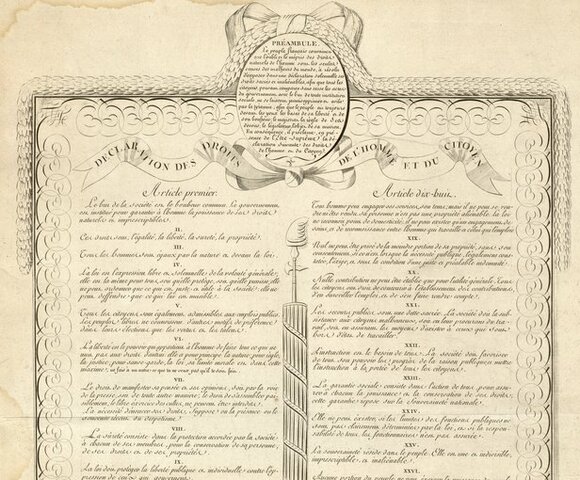 PRÉAMBULE.
Le peuple français convaincu
que l'oubli et le mépris des droits
naturels de l'homme sont les seules
causes des malheurs du monde, a résolu
d'exposer dans une déclaration solennelle ses
droits sacrés et inaliénables, afin que tous les
citoyens pouvant comparer sans cesse les actes
du gouvernement avec le but de toute institution
sociale ne se laissent jamais opprimer et avilir
par la tyrannie; afin que le peuple ait toujours
devant les yeux les bases de sa liberté et de
son bonheur; le magistrat la règle de ses
devoirs; le législateur l'objet de sa mission.
En conséquence, il proclame, en pré-
sence de l'Être Suprême, la dé-
claration suivante des droits
de l'homme et du Citoyen.
DÉCLARATION DES DROITS DE L'HOMME ET DU CITOYEN
Article premier.
Le but de la société est le bonheur commun. Le gouvernement
est institué pour garantir à l'homme la jouissance de ses droits
naturels et imprescriptibles.
II.
Ces droits sont, l'égalité, la liberté, la sureté, la propriété.
III.
Tous les hommes sont égaux par la nature et devant la loi.
IV.
La loi est l'expression libre et solennelle de la volonté générale;
elle est la même pour tous, soit qu'elle protège, soit qu'elle punisse; elle
ne peut ordonner que ce qui est juste et utile à la société; elle ne
peut défendre que ce qui lui est nuisible.
V.
Tous les citoyens sont également admissibles aux emplois publics.
Les peuples libres ne connoissent d'autres motifs de préférence
dans leurs élections que les vertus et les talens.
VI.
La liberté est le pouvoir qui appartient à l'homme de faire tout ce qui ne
nuit pas aux droits d'autrui: elle a pour principe la nature; pour règle,
la justice; pour sauve-garde, la loi: sa limite morale est dans cette
maxime: ne fais à un autre ce que tu ne veux pas qu'il te soit fait.
VII.
Le droit de manifester sa pensée et ses opinions, soit par la voie
de la presse, soit de toute autre manière; le droit de s'assembler pai-
siblement, le libre exercice des cultes, ne peuvent être interdits.
La nécessité d'énoncer ces droits suppose ou la présence ou le
souvenir récent du despotisme.
VIII.
La sûreté consiste dans la protection accordée par la Société
à chacun de ses membres, pour la conservation de sa personne,
de ses droits et de ses propriétés.
IX.
La loi doit protéger la liberté publique et individuelle contre l'op-
pression de ceux qui gouvernent.
Article dix-huit.
Tout homme peut engager ses services, son tems; mais il ne peut se ven-
dre ni être vendu; sa personne n'est pas une propriété aliénable. La loi
ne reconnoit point de domesticité; il ne peut exister qu'un engagement de
soins et de reconnoissance entre l'homme qui travaille et celui qui l'emploie.
XIX.
Nul ne peut être privé de la moindre portion de sa propriété, sans son
consentement, si ce n'est lorsque la nécessité publique, légalement cons-
tatée, l'exige, et sous la condition d'une juste et préalable indemnité.
XX.
Nulle contribution ne peut être établie que pour l'utilité générale. Tous les
citoyens ont droit de concourir à l'établissement des contributions,
d'en surveiller l'emploi, et de s'en faire rendre compte.
XXI.
Les secours publics sont une dette sacrée. La société doit la sub-
sistance aux citoyens malheureux, soit en leur procurant du tra-
vail, soit en assurant les moyens d'exister à ceux qui sont
hors d'état de travailler.
XXII.
L'instruction est le besoin de tous. La société doit favoriser
de tout son pouvoir les progrès de la raison publique et mettre
l'instruction à la portée de tous les citoyens.
XXIII.
La garantie sociale consiste dans l'action de tous pour assu-
rer à chacun la jouissance et la conservation de ses droits;
cette garantie repose sur la souveraineté nationale.
XXIV.
Elle ne peut exister, si les limites des fonctions publiques ne
sont pas clairement déterminées par la loi, et si la respon-
sabilité de tous les fonctionnaires n'est pas assurée.
XXV.
La souveraineté réside dans le peuple. Elle est une et indivisible,
imprescriptible et inaliénable.
XXVI.
Aucune portion du peuple ne peut exercer la puissance du